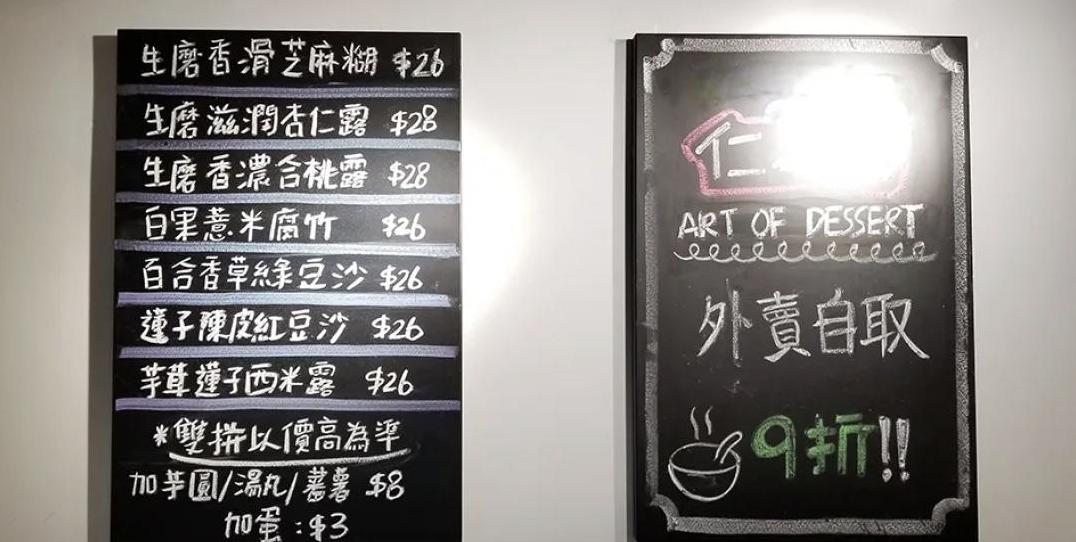 生磨香滑芝麻糊 $26
生磨滋潤杏仁露 $28
生磨香濃合桃露 $28
白果薏米腐竹 $26
百合香草綠豆沙 $26
蓮子陳皮紅豆沙 $26
芋茸蓮子西米露 $26
*雙拼以價高為準
加芋圓/湯丸/蕃薯 $8
加蛋：$3
仁
ART OF DESSERT
外賣自取
9折!!